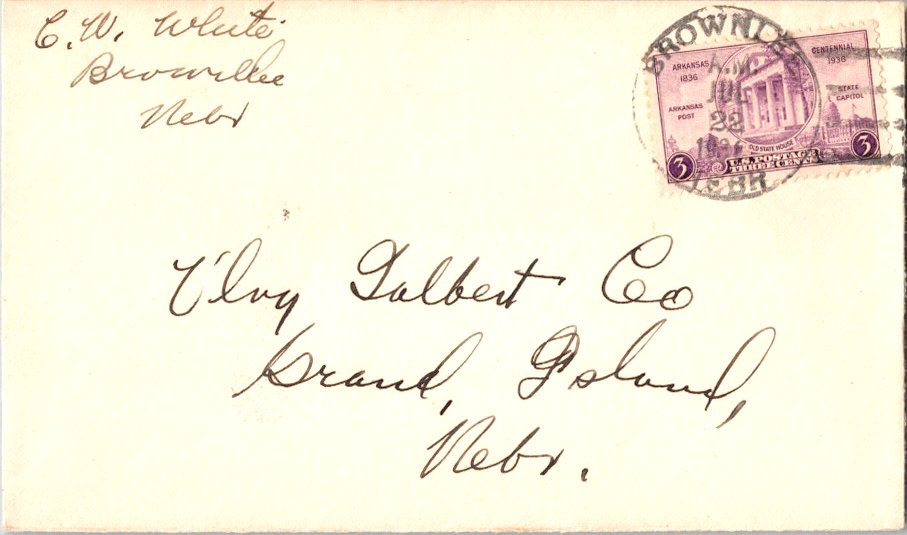 C. W. White
Brownlee
Nebr
BROWNLEE
A.M.
JUL
22
1936
NEBR
ARKANSAS
1836
CENTENNIAL
1936
ARKANSAS
POST
STATE
CAPITOL
OLD STATE HOUSE
3 U.S. POSTAGE 3
THREE CENTS
Talbert Co
Grand Island,
Nebr.